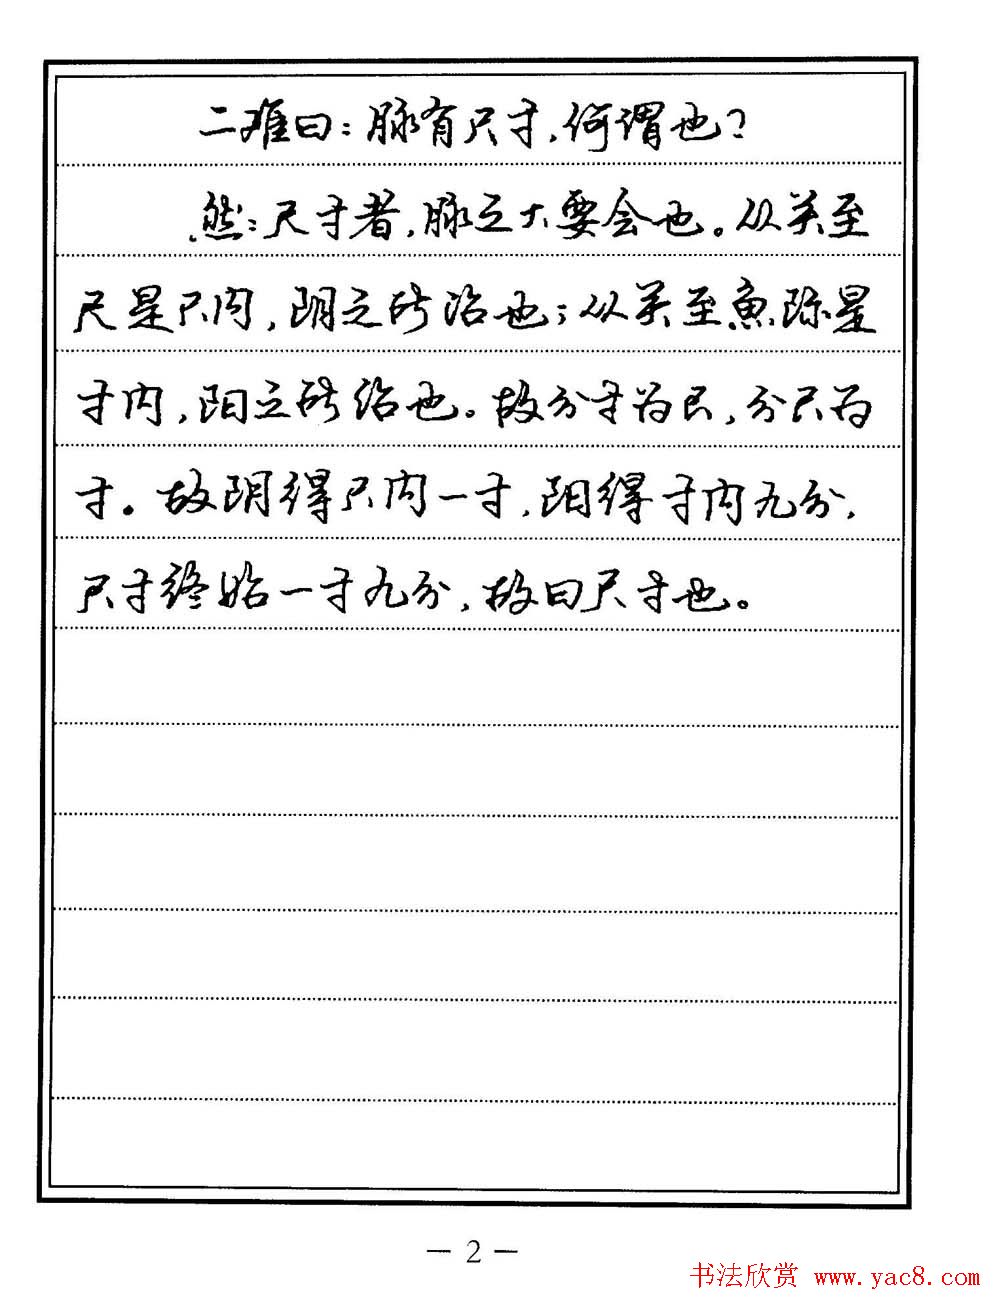 二难曰：脉有尺寸，何谓也？
然：尺寸者，脉之大要会也。从关至
尺是尺内，阴之所治也；从关至魚际是
寸内，阳之所治也。故分寸为尺，分尺为
寸。故阴得尺内一寸，阳得寸内九分，
尺寸终始一寸九分，故曰尺寸也。
— 2 —
书法欣赏 www.yac8.com